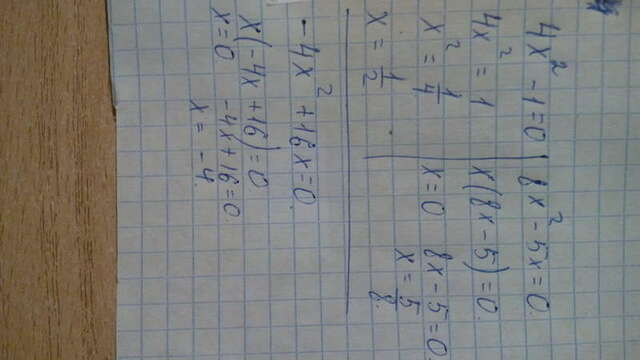 4x² - 1 = 0
4x² = 1
x² = 1/4
x = 1/2
8x² - 5x = 0.
x(8x - 5) = 0.
x = 0 8x - 5 = 0.
x = 5/8.
-4x² + 16x = 0.
x(-4x + 16) = 0
x = 0 -4x + 16 = 0.
x = -4.